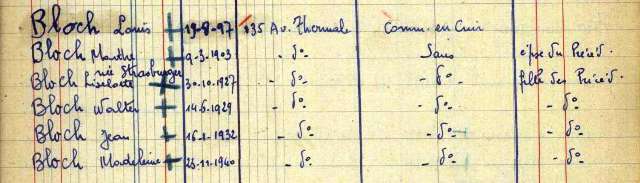 Bloch Louis + 19-8-97 135 Av. Thermale Comm. en Cuir
Bloch Marthe + 9-3-1903 - do Sans épse du Précéd.
née Strasburger
Bloch Liselotte + 30-10-1927 - do - do fille des Précéd.
Bloch Walter + 14-6-1929 - do - do - do
Bloch Jean + 16-1-1932 - do - do - do
Bloch Madeleine + 25-11-1940 - do - do - do